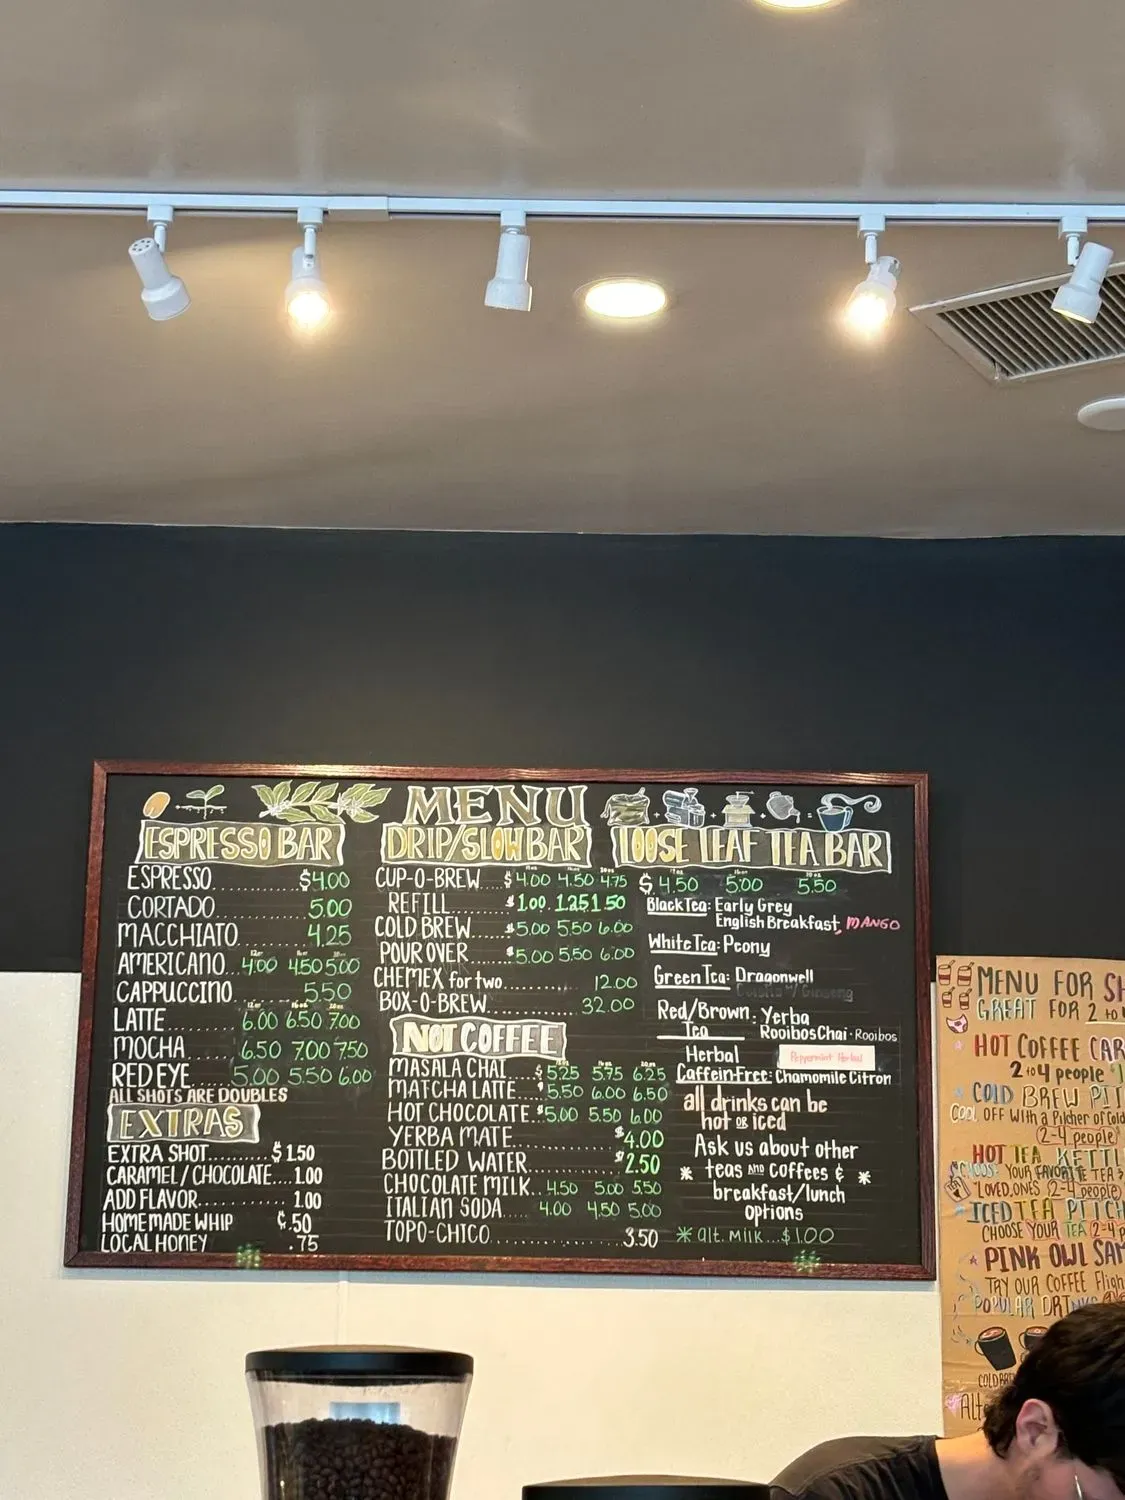 MENU
ESPRESSO BAR
ESPRESSO............$4.00
CORTADO............5.00
MACCHIATO..........4.25
12oz 16oz 20oz
AMERICANO...4.00 4.50 5.00
CAPPUCCINO..........5.50
12oz 16oz 20oz
LATTE.........6.00 6.50 7.00
MOCHA.......6.50 7.00 7.50
RED EYE......5.00 5.50 6.00
ALL SHOTS ARE DOUBLES
EXTRAS
EXTRA SHOT.........$1.50
CARAMEL/CHOCOLATE....1.00
ADD FLAVOR...........1.00
HOMEMADE WHIP $.50
LOCAL HONEY .75
DRIP/SLOW BAR
12oz 16oz 20oz
CUP-O-BREW....$4.00 4.50 4.75
REFILL.........$1.00 1.25 1.50
COLD BREW....$5.00 5.50 6.00
POUR OVER.....$5.00 5.50 6.00
CHEMEX for two...........12.00
BOX-O-BREW............32.00
NOT COFFEE
12oz 16oz 20oz
MASALA CHAI....$5.25 5.75 6.25
MATCHA LATTE..$5.50 6.00 6.50
HOT CHOCOLATE.$5.00 5.50 6.00
YERBA MATE............$4.00
BOTTLED WATER..........$2.50
CHOCOLATE MILK..4.50 5.00 5.50
ITALIAN SODA....4.00 4.50 5.00
TOPO-CHICO..............3.50
LOOSE LEAF TEA BAR
12oz 16oz 20oz
$4.50 5.00 5.50
Black Tea: Early Grey
English Breakfast, MANGO
White Tea: Peony
Green Tea: Dragonwell
Red/Brown: Yerba
Tea Rooibos Chai · Rooibos
Herbal Peppermint Herbal
Caffein-Free: Chamomile Citron
all drinks can be
hot or iced
Ask us about other
* teas AND coffees & *
breakfast/lunch
options
* alt. milk...$1.00
MENU FOR
GREAT FOR 2 to
HOT COFFEE
2 to 4 people
COLD BREW
COOL OFF with a Pitcher of
(2-4 people)
HOT TEA KETTL
CHOOSE YOUR FAVORITE TEA
LOVED ONES (2-4 people)
ICED TEA PITCH
CHOOSE YOUR TEA (2-4
PINK OWL
TRY OUR COFFEE
POPULAR